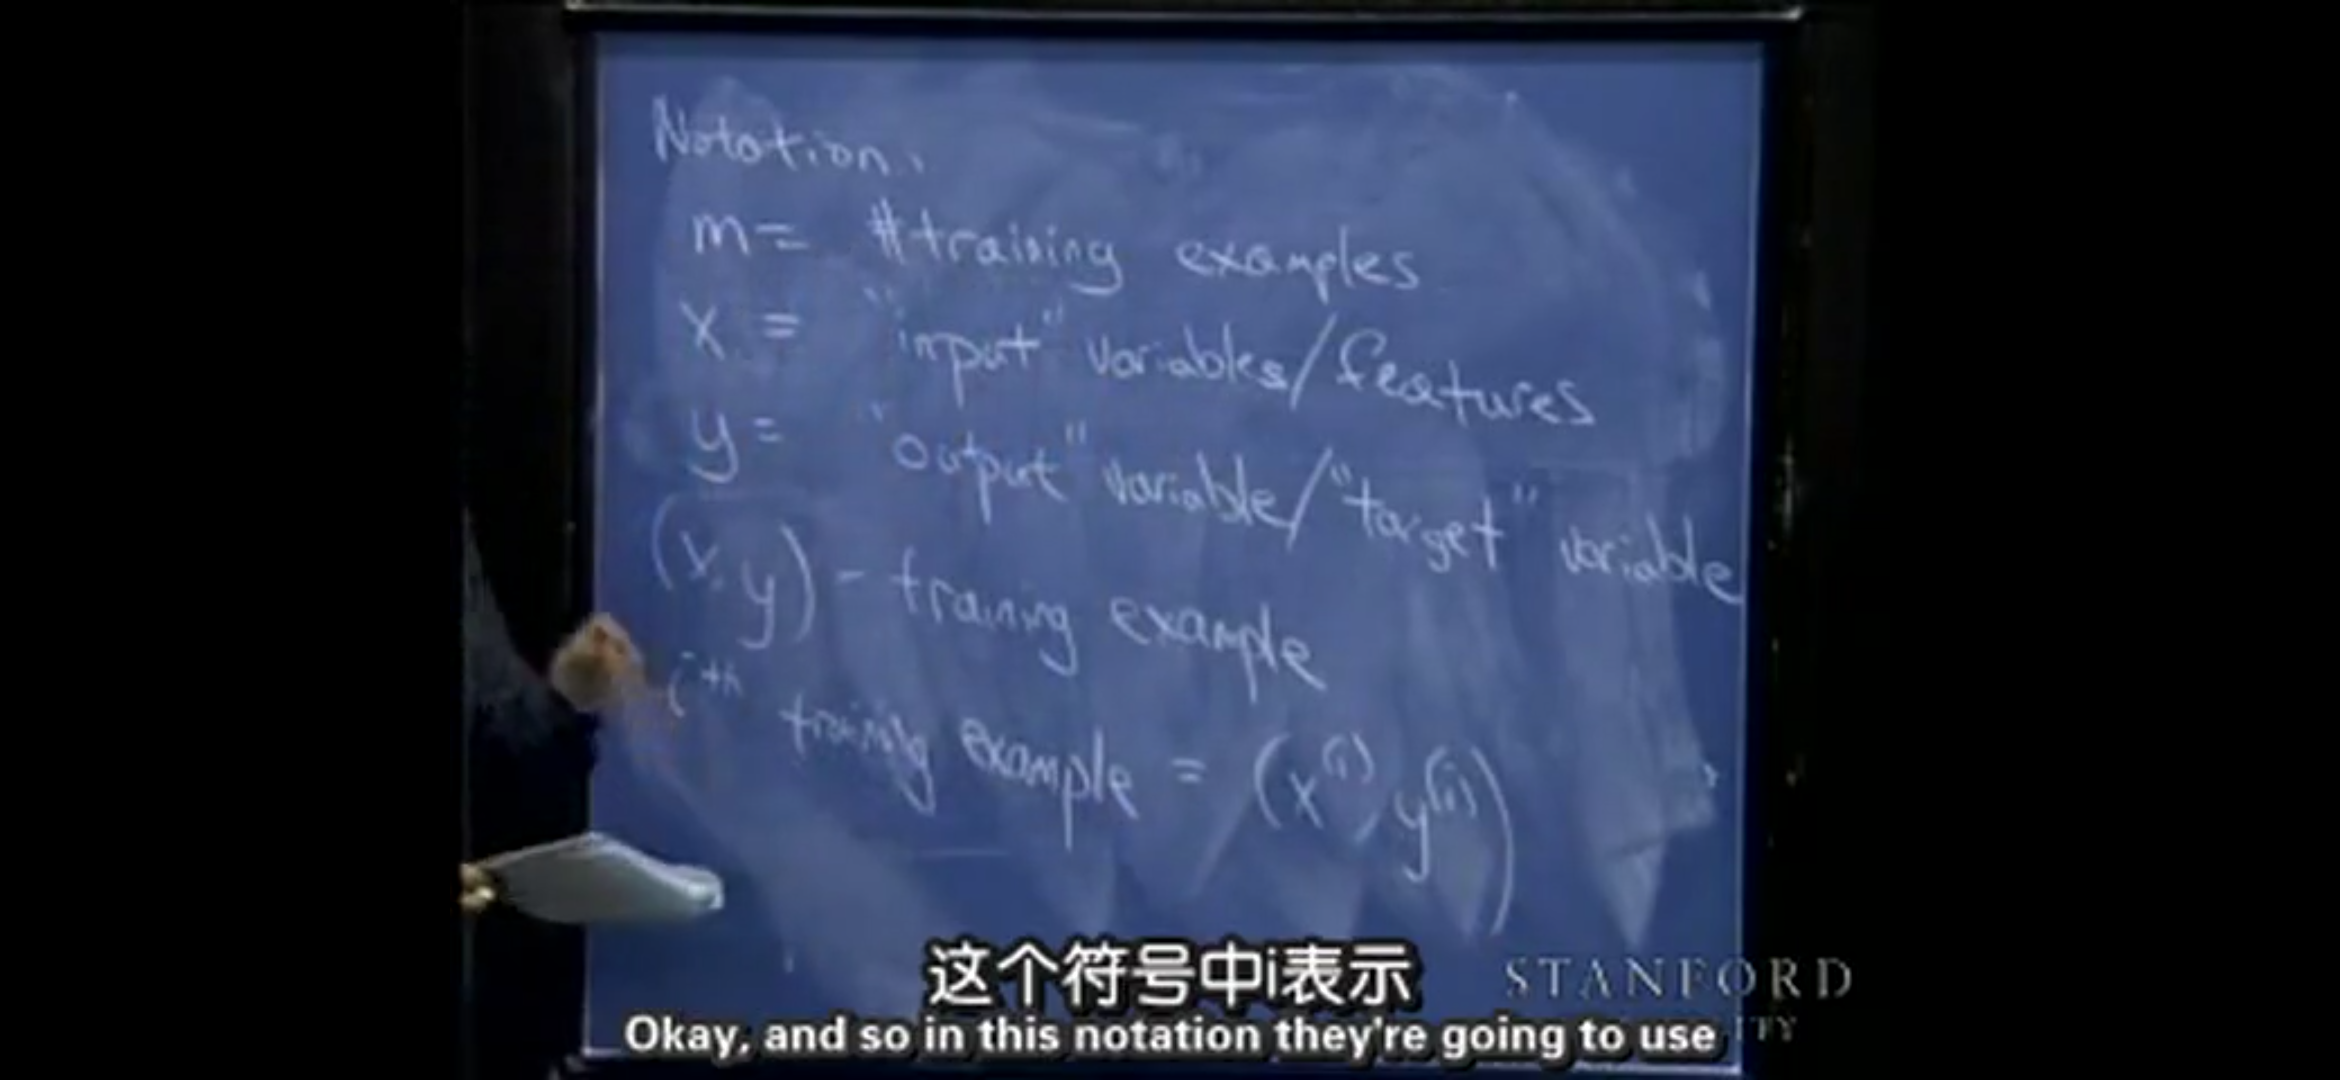 Notation:
m = # training examples
x = "input" variables/features
y = "output" variable/"target" variable
(x, y) - training example
i^th training example = (x^(i), y^(i))
这个符号中i表示
STANFORD
Okay, and so in this notation they're going to use